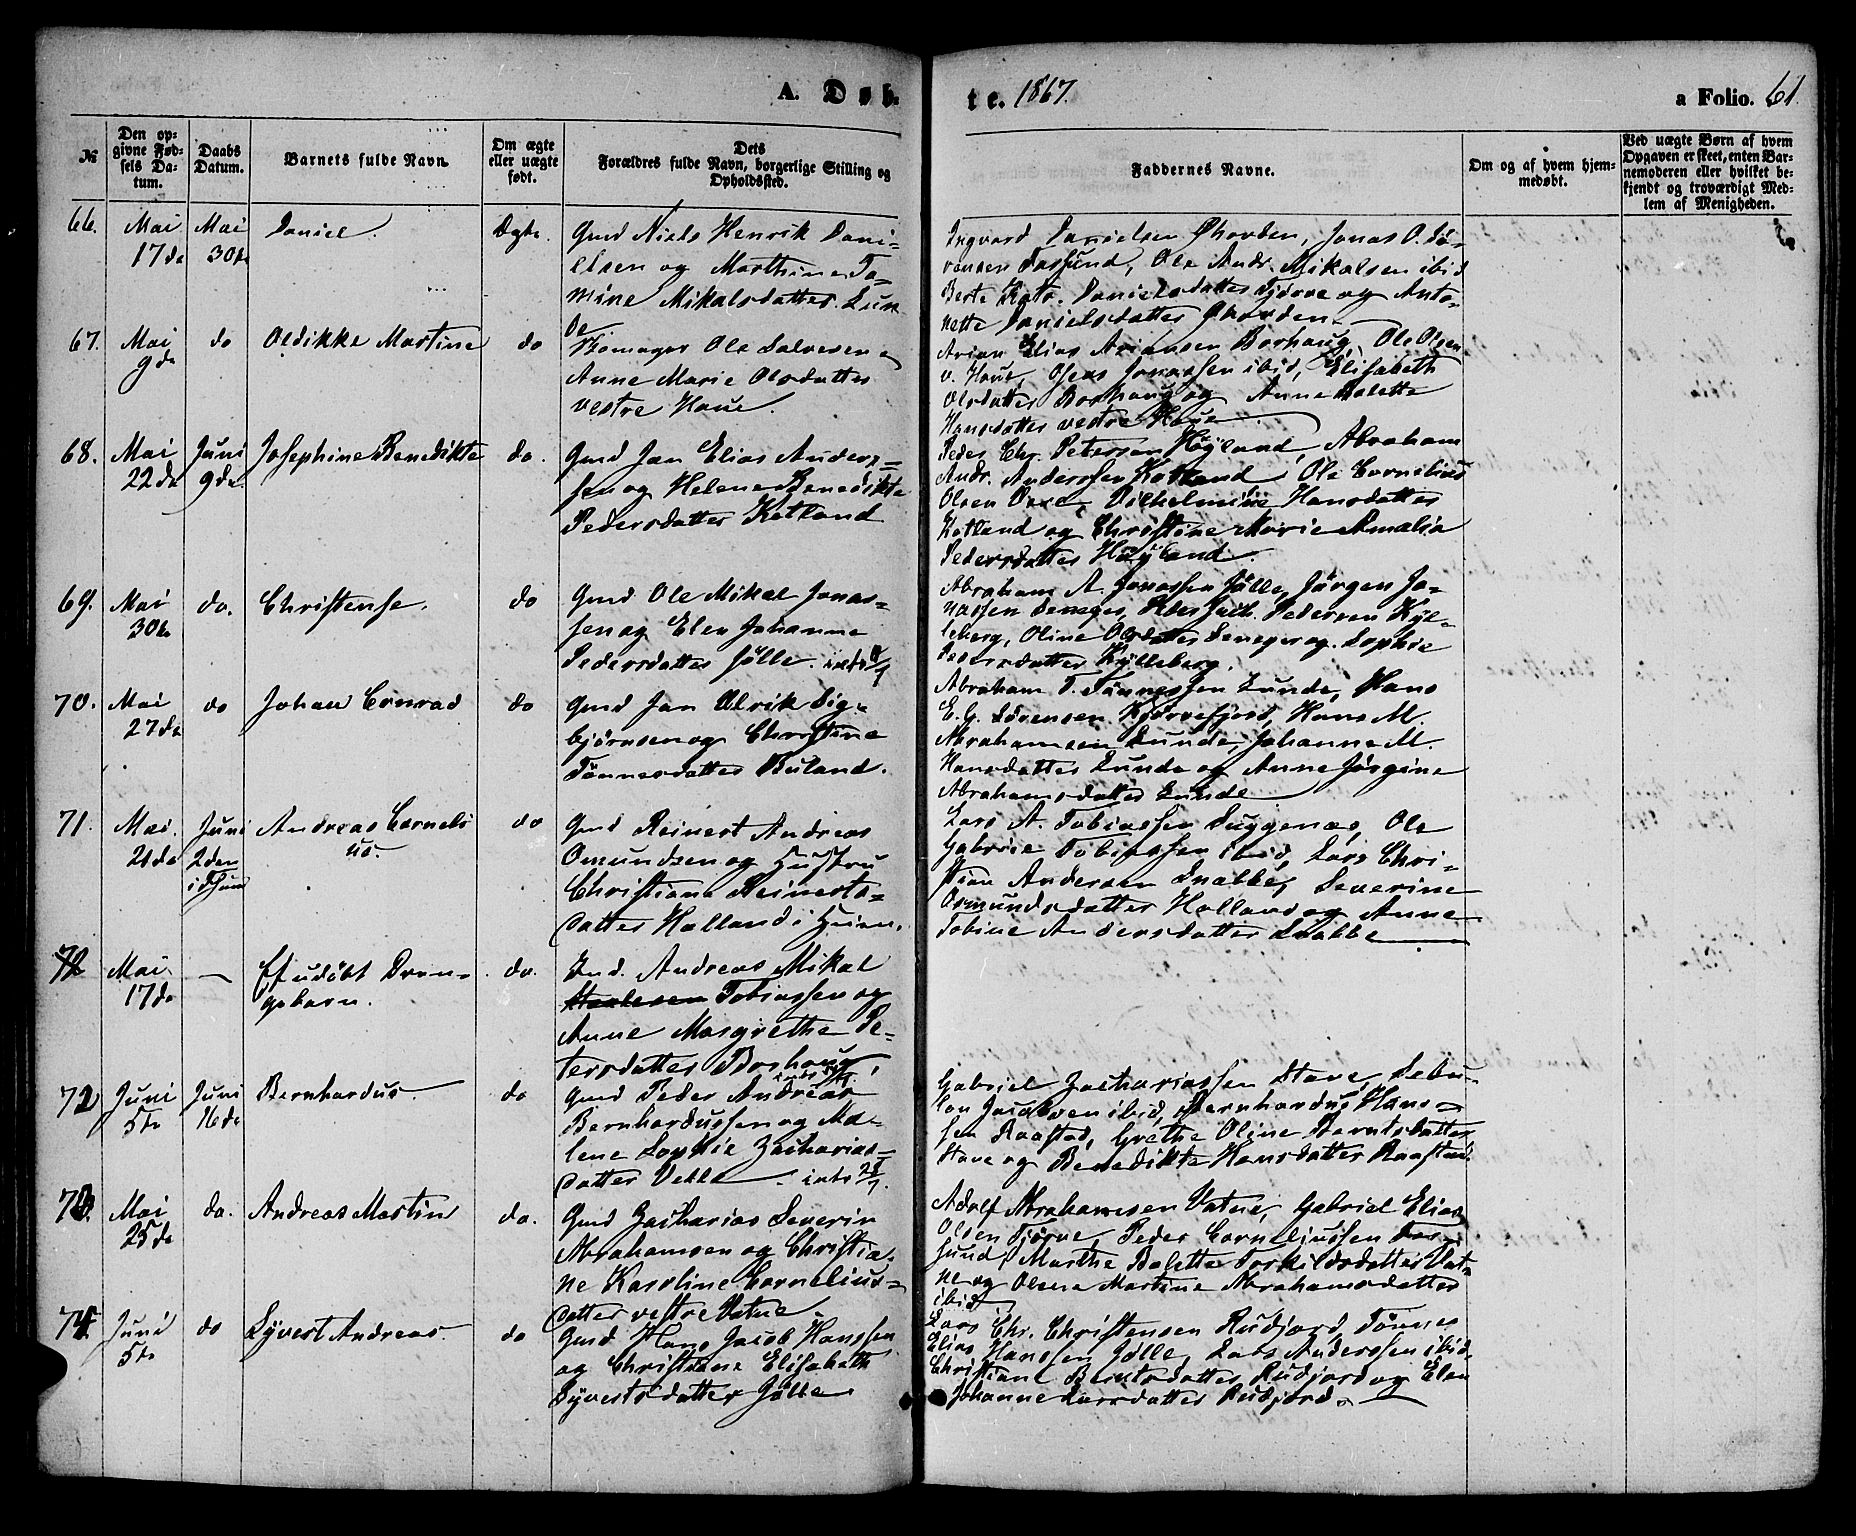 A. Døb-
te. 1867.
a Folio. 61.
№
Den op-
givne Fød-
sels Da-
tum.
Daabs
Datum.
Barnets fulde Navn.
Om ægte
eller uægte
født.
Dets
Forældres fulde Navn, borgerlige Stilling og
Opholdssted.
Faddernes Navne.
Om og af hvem hjem-
medøbt.
Ved uægte Børn af hvem
Opgaven er skeet, enten Bar-
nemoderen eller hvilket be-
kjendt og troværdigt Med-
lem af Menigheden.
66.
Mai
17de
Mai
30te
Daniel.
Ægte.
Gmd Niels Henrik Dani-
elsen og Marthine To-
mine Mikalsdatter Lun
de
Ingvard Danielsen Øhovden, Jonas O. Sø-
rensen Farsund, Ole Andr. Mikalsen ibid
Berte Kato. Danielsdatter Tjørve og Anto-
nette Danielsdatter Øhovden
67.
Mai
9de
do
Oedikke Martine
do
Ole Salvesen
Anne Marie Olsdatter
vestre Haue.
Arian Elias Ariansen Borhaug, Ole Olsen
v. Haue, Osens Jonassen ibid, Elisabeth
Olsdatter Borhaug og Anne Malette
Hansdatter vestre Haue
68.
Mai
22de
Juni
9de.
Josephine Benedikte
do.
Gmd Jan Elias Anders-
sen og Helene Benedikte
Pedersdatter Ketland
Peder Chr. Petersen Høyland, Abraham
Andr. Anderssen Ketland, Ole Cornelius
Olsen Ore, Vilhelmine Hansdatter
Ketland og Christine Marie Amalia
Pedersdatter Høyland
69.
Mai
30te
do.
Christense.
do
Gmd Ole Mikal Jonas-
sen og Elen Johanne
Pedersdatter Jölle.
Abraham A. Jonassen Jölle, Jörgen Jo-
nassen Peder Pedersen Kyl-
leberg, Oline Olsdatter og Sophie
Pedersdatter Kylleberg.
70.
Mai
27de
do
Johan Conrad
do
Gmd Jan Ulrik Sig-
bjørnsen og Christine
Tönnesdatter Buland.
Abraham T. Tönnessen Lunde, Hans
E. G. Sörensen Kjørrefjord, Hans M.
Abrahamsen Lunde, Johanne M.
Hansdatter Lunde og Anne Jörgine
Abrahamsdatter Lunde
71.
Mai.
21de
Juni
2den
Andreas Corneli
us.
do
Gmd Reinert Andreas
Omundsen og Hustru
Christiane Reinerts-
datter Hälland i
Lars A. Tobiassen Duggenæs, Ole
Gabriel Tobiassen ibid, Lars Chri-
stian Andersen Snabbe, Severine
Osmundsdatter Halland og Anne
Tobine Andersdatter Snabbe
72
Mai
17de
—
Et udöbt Dren-
gebarn.
do.
Andreas Mikal
Tobiassen og
Anne Margrethe Pe-
tersdatter Borhaug.
72
Juni
5te
Juni
16de
Bernhardus.
do
Gmd Peder Andreas
Bernhardussen og Ma-
lene Sophie Zacharias-
datter Velle.
Gabriel Zachariassen Stave,
Jacobsen ibid, Bernhardus Hans-
sen Raastad, Grethe Oline Berntsdatter
Stave og Benedikte Hansdatter Raastad.
73.
Mai
25de
do.
Andreas Martin
do.
Gmd Zacharias Severin
Abrahamsen og Christia-
ne Karoline Cornelius-
datter vestre Vatne.
Adolf Abrahamsen Vatne, Gabriel Elias
Olsen Tjørve, Peder Corneliussen Far-
sund, Marthe Bolette Torkildsdatter Vat-
ne og Olene Martine Abrahamsdatter
ibid
74.
Juni
5te
do
Syvert Andreas.
do
Gmd Hans Jacob Hanssen
og Christiane Elisabeth
Syvertsdatter Jölle
Lars Chr. Christensen Rudjord Tönnes
Elias Hanssen Jölle, Lars Anderssen ibid.
Christiane Berntsdatter Rudjord og Elen
Johanne Larsdatter Rudjord.